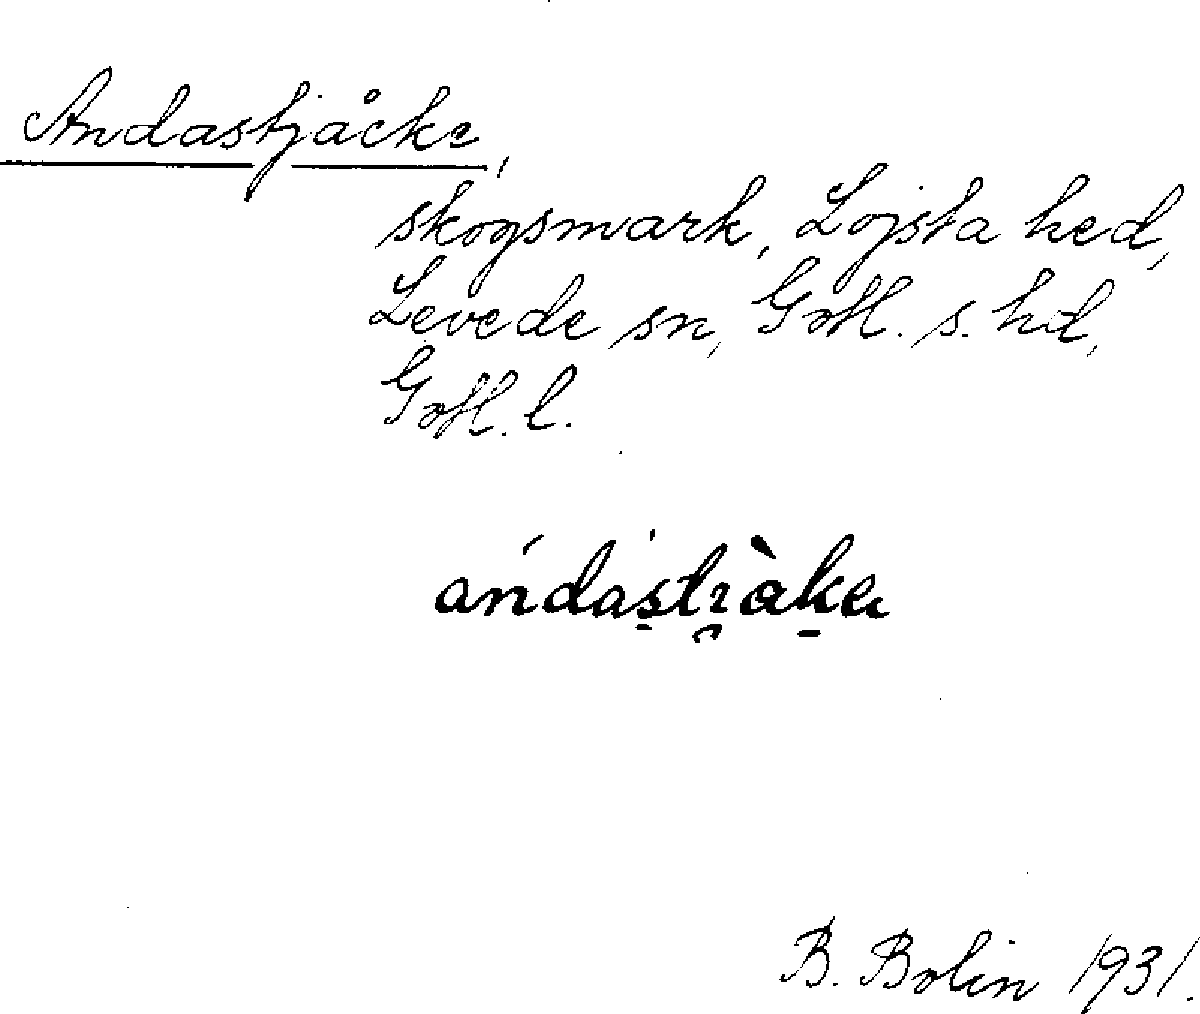 Andastjåcke,
skogsmark, Lojsta hed,
Levede sn, Gotl. s. hd,
Gotl. l.
B. Bolin 1931.